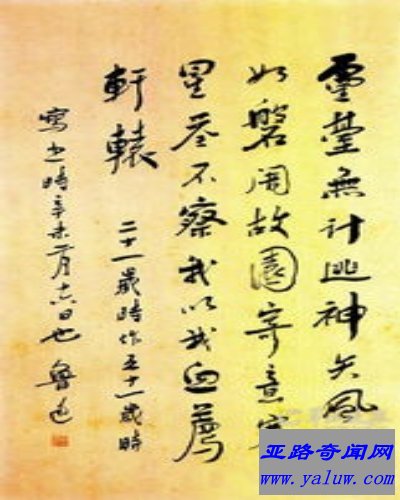 靈臺無計逃神矢風
如磐闇故園寄意寒
星荃不察我以我血薦
軒轅 二十一歲時作五十一歲時
寫之時辛未二月十六日也 魯迅
亚路奇闻网
www.yaluw.com